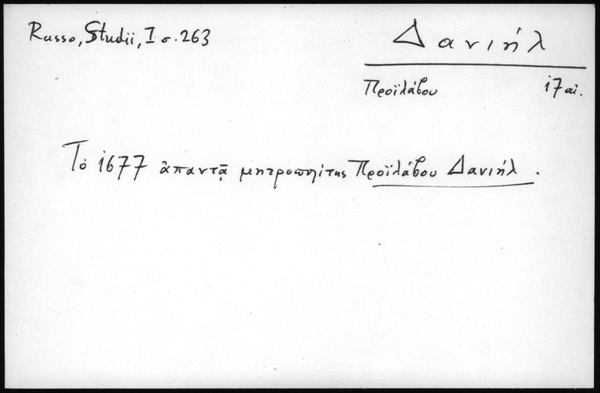 Russo, Studii, I σ. 263
Δανιήλ
Προϊλάβου 17 αἰ.
Τὸ 1677 ἀπαντᾷ μητροπολίτης Προϊλάβου Δανιήλ.